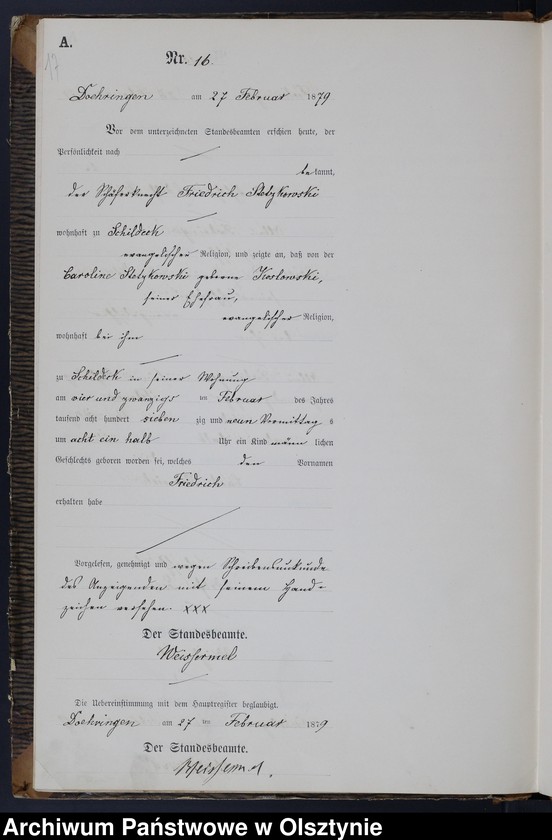 A.
17
Nr. 16.
Doehringen am 27 Februar 1879
Vor dem unterzeichneten Standesbeamten erschien heute, der
Persönlichkeit nach
bekannt,
der Schäferknecht Friedrich Stetzkowski
wohnhaft zu Schildeck
evangelischer Religion, und zeigte an, daß von der
Caroline Stetzkowski geborne Koslowski,
seiner Ehefrau,
evangelischer Religion,
wohnhaft bei ihm
zu Schildeck in seiner Wohnung
am vier und zwanzigs ten Februar des Jahres
tausend acht hundert sieben zig und neun Vormittag s
um acht ein halb Uhr ein Kind männ lichen
Geschlechts geboren worden sei, welches den Vornamen
Friedrich
erhalten habe
Vorgelesen, genehmigt und wegen Schreibensunkunde
des Anzeigenden mit seinem Hand-
zeichen versehen. XXX
Der Standesbeamte.
Weissermel
Die Uebereinstimmung mit dem Hauptregister beglaubigt.
Doehringen am 27 ten Februar 1879
Der Standesbeamte.
Weissermel.
Archiwum Państwowe w Olsztynie